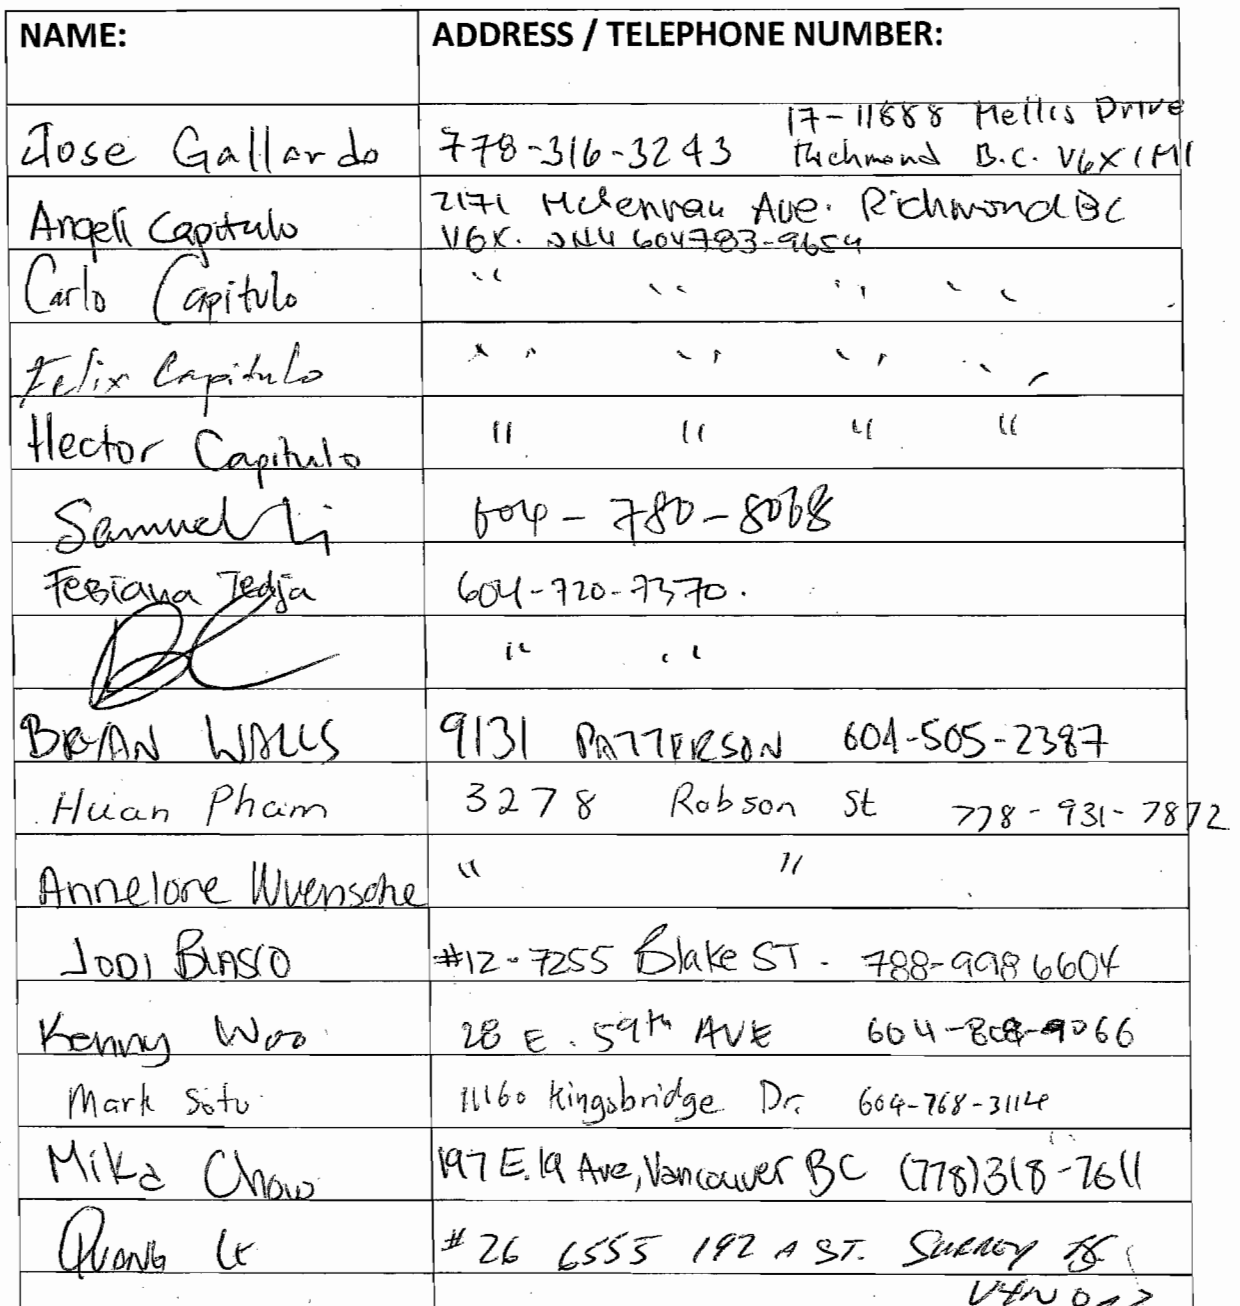 NAME: ADDRESS / TELEPHONE NUMBER:
17-11888 Hellis Drive
Jose Gallardo 778-316-3243 Richmond B.C. V6X 1M1
2171 McLennan Ave. Richmond BC
Angeli Capitulo V6X. 604783-9654
Carlo Capitulo " " " "
Felix Capitulo " " " "
Hector Capitulo " " " "
Samuel Li 604-780-8068
Febiana Tedja 604-720-7370.
" "
BRIAN WALLS 9131 PATTERSON 604-505-2387
Huan Pham 3278 Robson St 778-931-7872
Annelore Wuensche " "
JODI BLASCO #12-7255 Blake ST. 788-998 6604
Kenny Woo 28 E. 59th AVE 604-808-9066
Mark Soto 11160 Kingsbridge Dr. 604-768-3114
Mika Chow 197 E. 19 Ave, Vancouver BC (778)318-7611
QUANG LE #26 6555 192 A ST. SURREY BC